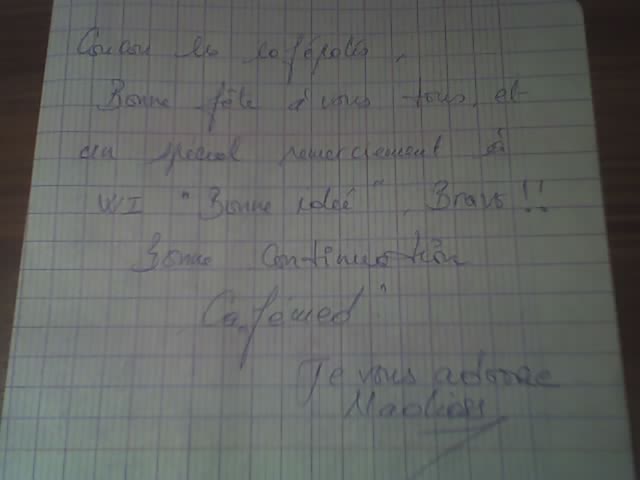 Coucou les cafépotes,
Bonne fête à vous tous, et
un special remerciement à
WI "Bonne idée", Bravo !!
Bonne Continuation
Cafémed
Je vous adore